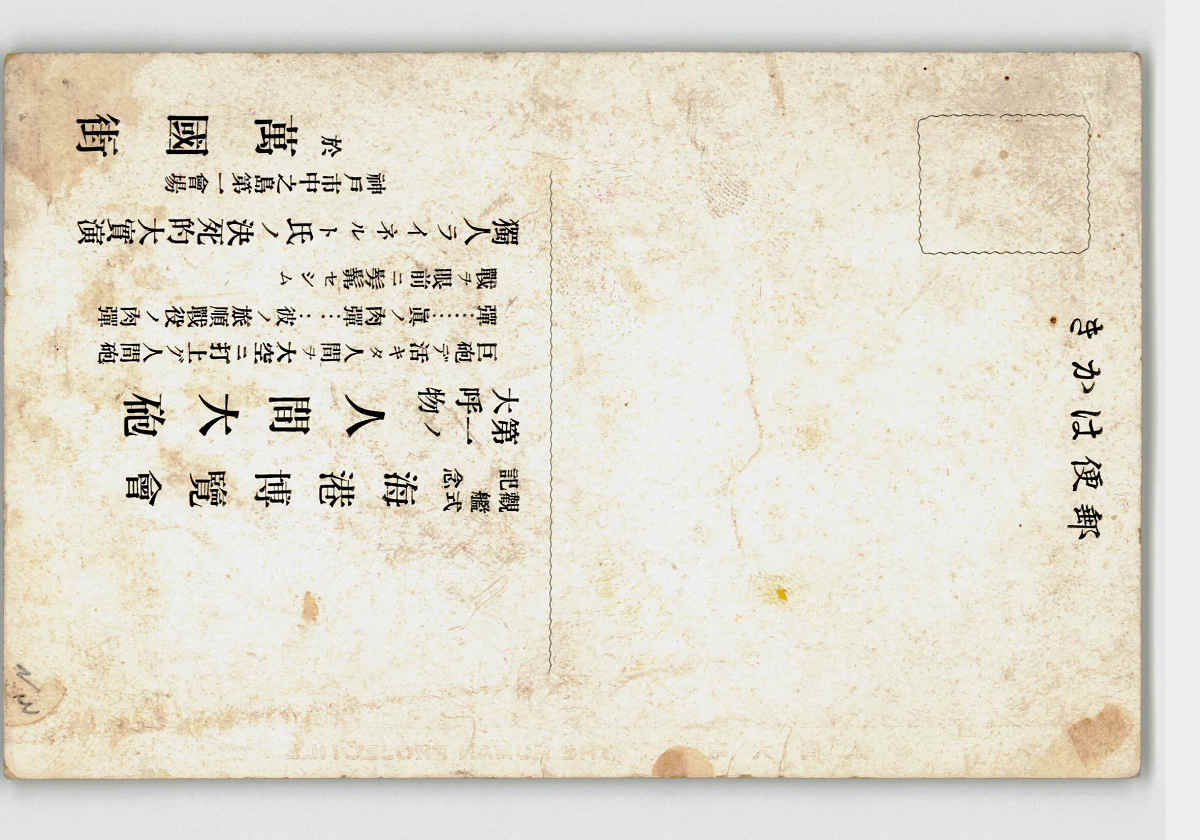 郵便はかき
觀艦式
記念
海港博覽會
第一ノ
大呼物
人間大砲
巨砲デ活キタ人間ヲ大空ニ打上グ人間砲
彈……眞ノ肉彈……彼ノ旅順戰役ノ肉彈
戰ヲ眼前ニ髣髴セシム
獨人ライネルト氏ノ決死的大實演
神戸市中之島第一會場
於 萬國街